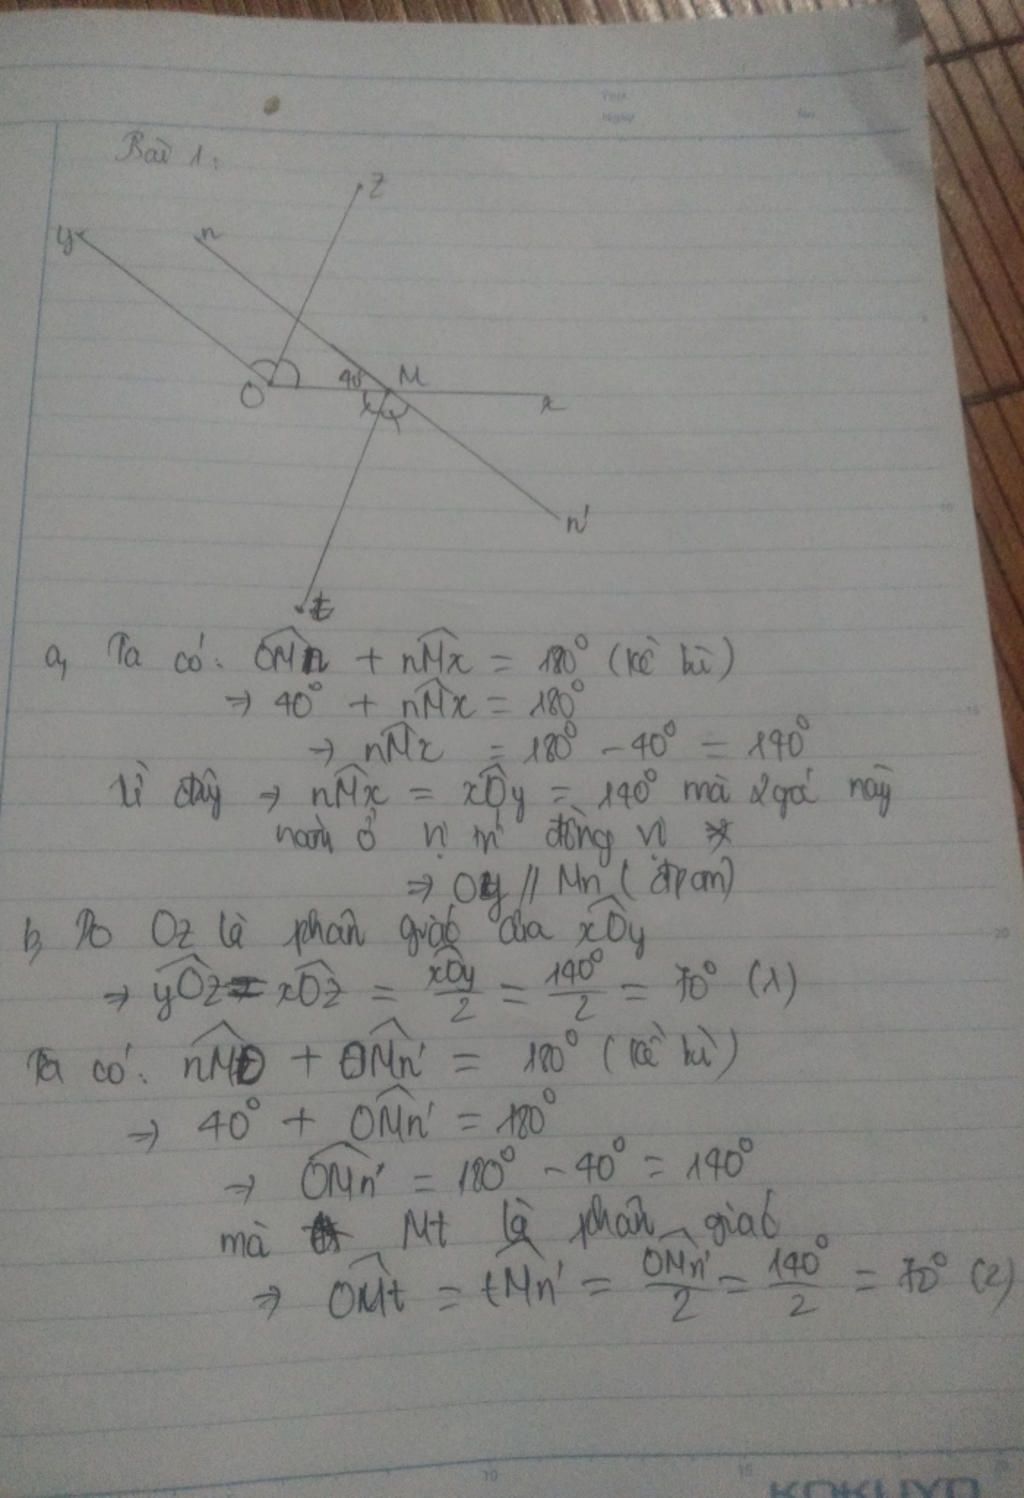 Bài 1:
z
y
n
O
40°
M
x
n'
t
a, Ta có: OMn + nMx = 180° (kề bù)
⇒ 40° + nMx = 180°
⇒ nMx = 180° - 40° = 140°
Từ đây ⇒ nMx = xOy = 140° mà 2 góc này
nằm ở vị trí đồng vị
⇒ Oy // Mn (đpcm)
b, Do Oz là phân giác của xOy
⇒ yOz = xOz = xOy/2 = 140°/2 = 70° (1)
Ta có: nMO + OMn' = 180° (kề bù)
⇒ 40° + OMn' = 180°
⇒ OMn' = 180° - 40° = 140°
mà Mt là phân giác
⇒ OMt = tMn' = OMn'/2 = 140°/2 = 70° (2)
10
15
20
KOKUYO